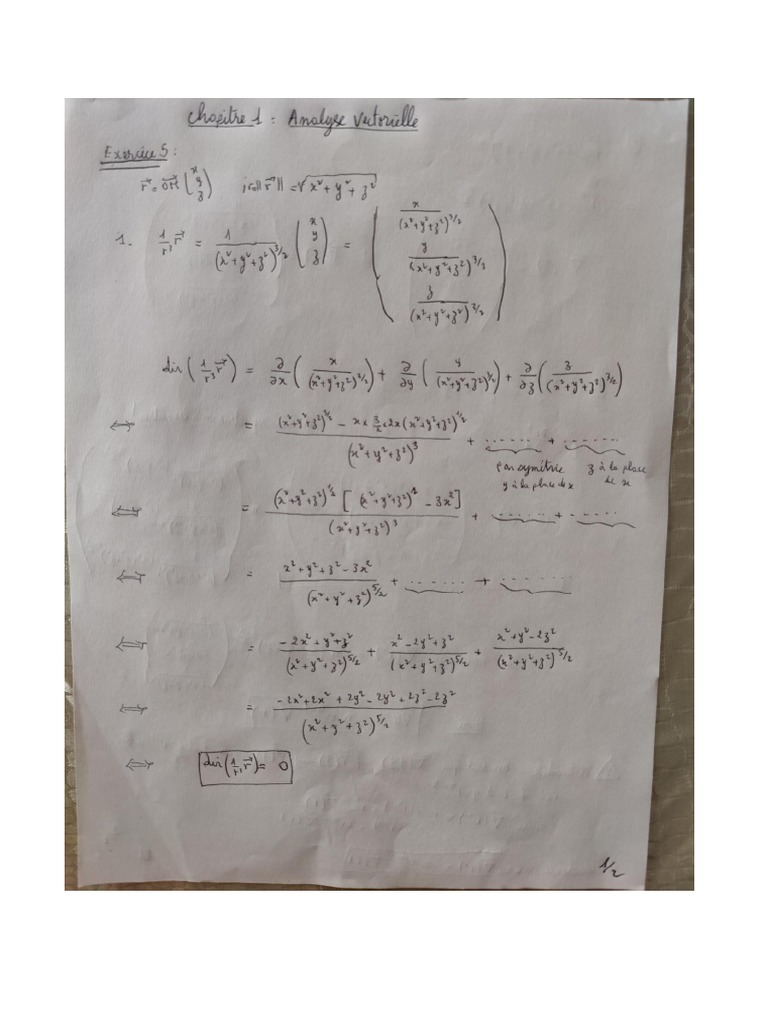 Chapitre 1 : Analyse Vectorielle
Exercice 5 :
r⃗ = OM⃗ (x y z) ; r = ||r⃗|| = √(x² + y² + z²)
1. 1/r³ r⃗ = 1/(x²+y²+z²)^3/2 (x y z) = ( x/(x²+y²+z²)^3/2 y/(x²+y²+z²)^3/2 z/(x²+y²+z²)^3/2 )
div(1/r³ r⃗) = ∂/∂x ( x/(x²+y²+z²)^3/2 ) + ∂/∂y ( y/(x²+y²+z²)^3/2 ) + ∂/∂z ( z/(x²+y²+z²)^3/2 )
⇔ = ((x²+y²+z²)^3/2 − x × 3/2 × 2x (x²+y²+z²)^1/2)/(x²+y²+z²)^3 + ...... + ......
par symétrie y à la place de x
z à la place de x
⇔ = ((x²+y²+z²)^1/2 [(x²+y²+z²)^1 − 3x²])/(x²+y²+z²)^3 + ...... + ......
⇔ = (x²+y²+z²−3x²)/(x²+y²+z²)^5/2 + ...... + ......
⇔ = (−2x²+y²+z²)/(x²+y²+z²)^5/2 + (x²−2y²+z²)/(x²+y²+z²)^5/2 + (x²+y²−2z²)/(x²+y²+z²)^5/2
⇔ = (−2x²+2x²+2y²−2y²+2z²−2z²)/(x²+y²+z²)^5/2
⇔ div(1/r³ r⃗) = 0
1/2